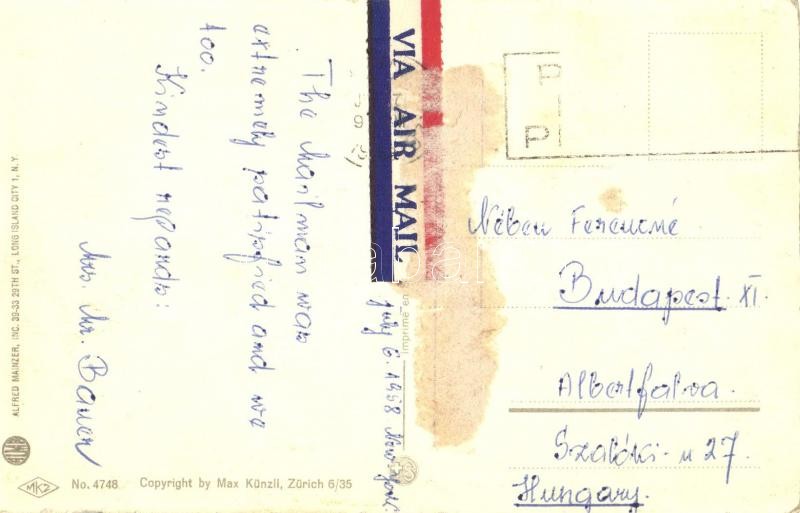 The Mailman was
extremely satisfied and we
too.
Kindest regards:
Mrs. Mr. Bauer
ALFRED MAINZER, INC. 39-33 29TH ST., LONG ISLAND CITY 1, N.Y.
MKZ
No. 4748
Copyright by Max Künzli, Zürich 6/35
VIA AIR MAIL
July 6. 1958 New York
Imprimé en
Ferencné
Budapest. XI.
Albertfalva.
Szalóki- u 27.
Hungary.